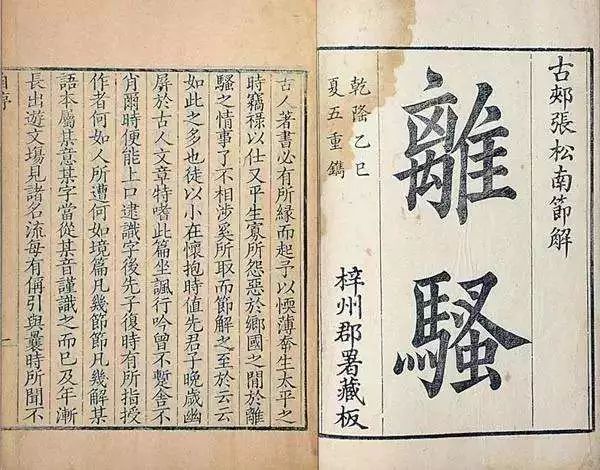 古郟張松南節解
離騷
乾隆乙巳
夏五重鐫
梓州郡署藏板
古人著書必有所緣而起予以愞薄奉生太平之
時竊祿以仕又平生寡所怨惡於鄉國之閒於離
騷之情事了不相涉奚所取而節解之至於云云
如此之多也徒以小在懷抱時值先君子晚歲幽
屏於古人文章特嗜此篇坐諷行吟曾不暫舍不
肖爾時便能上口逮識字後先子復時有所指授
作者何如人所遭何如境篇凡幾節節凡幾解某
語本屬某意某字當從某音謹識之而已及年漸
長出遊文場見諸名流每有偁引與曩時所聞不
自序
一